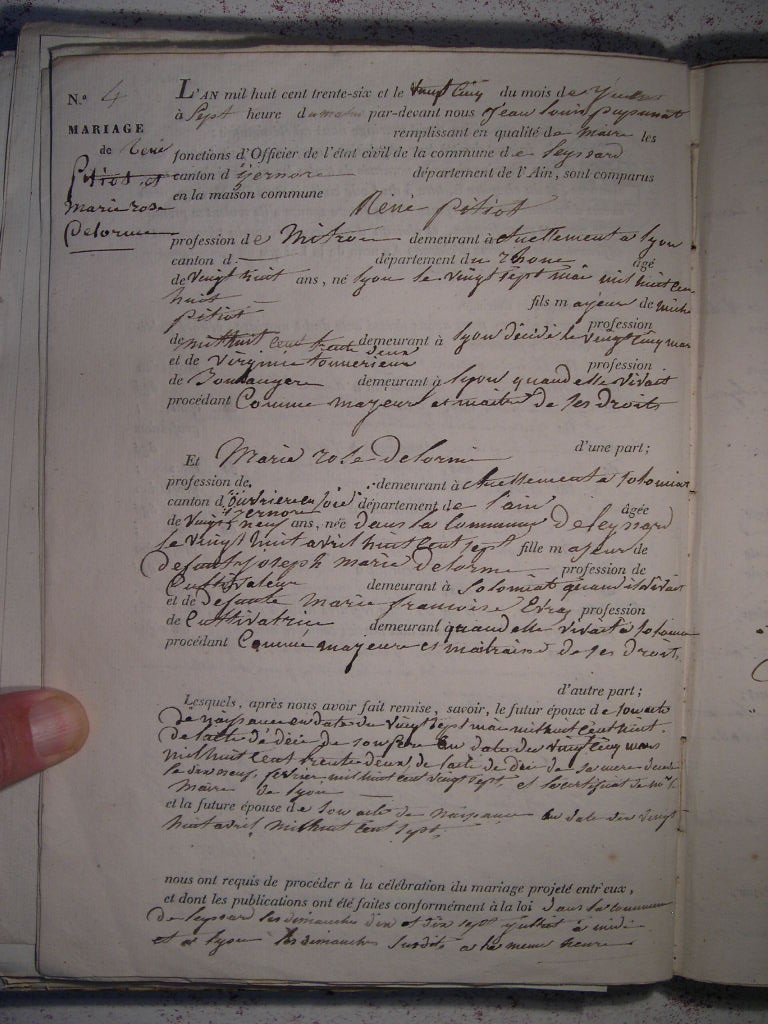 N.º 4
MARIAGE
de René
pitiot et
marie rose
Delorme
L'AN mil huit cent trente-six et le vingt cinq du mois de Juillet
à Sept heure du matin par-devant nous Jean louis
remplissant en qualité de maire les
fonctions d'Officier de l'état civil de la commune de leyssard
canton d'izernore département de l'Ain, sont comparus
en la maison commune
René pitiot
profession de Mitron demeurant à actuellement a lyon
canton d département du rhone âgé
de vingt huit ans, né lyon le vingt sept mai mil huit cent
huit fils majeur de
pitiot profession
de mil huit cent trente deux demeurant à lyon décédé le vingt cinq mars
et de virginie profession
de Boulangere demeurant à lyon quand elle vivait
procédant Comme majeur et maitre de ses droits
d'une part;
Et Marie rose delorme
profession de demeurant à actuellement a solomiat
canton d ouvriere en soie département de l'ain âgée
izernore
de vingt neuf ans, née dans la Commune de leyssard
le vingt huit avril mil huit cent sept fille majeur de
Defunt joseph marie delorme profession de
Cultivateur demeurant à solomiat quand il vivait
et de defunte marie francoise profession
de Cultivatrice demeurant quand elle vivait a solomiat
procédant Comme majeure et maitraisse de ses droits
d'autre part;
Lesquels, après nous avoir fait remise, savoir, le futur époux de son acte
de naissance en date du vingt sept mai mil huit cent huit.
de l'acte de décé de son pere en date du vingt cinq mars
mil huit cent trente deux, de l'acte de décé de sa mere
le dix neuf fevrier mil huit cent vingt sept, et le certificat de mr le
maire de lyon
et la future épouse de son acte de naissance en date du vingt
huit avril mil huit cent sept.
nous ont requis de procéder à la célébration du mariage projeté entr'eux,
et dont les publications ont été faites conformément à la loi dans la commune
de leyssard les dimanches dix et dix sept juillet à midi
et a lyon les dimanches susdits a la meme heure